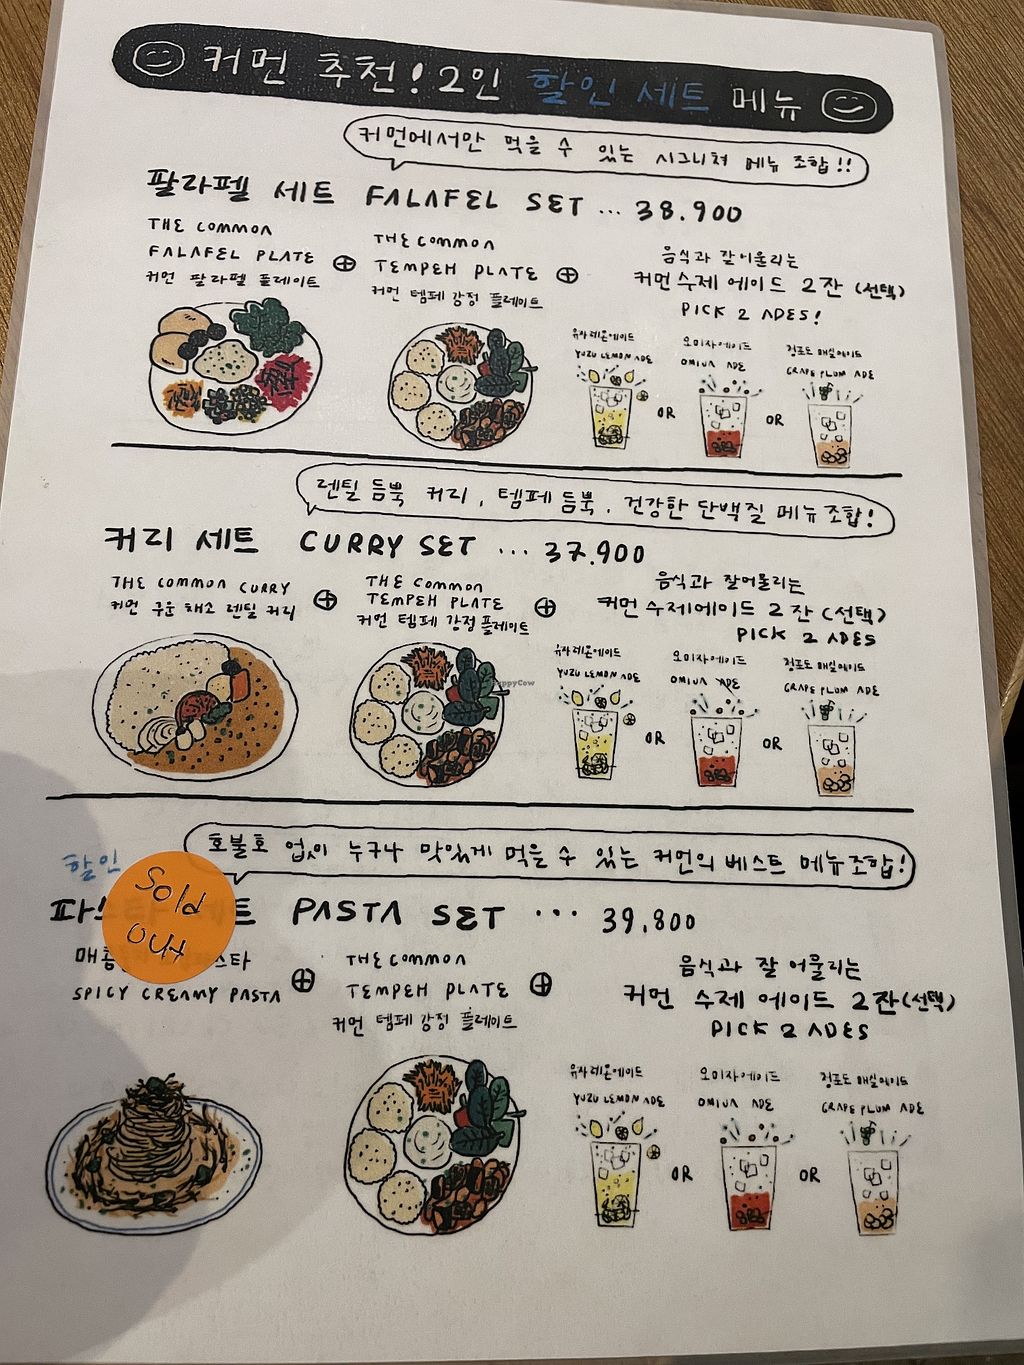 커먼 추천! 2인 할인 세트 메뉴
커먼에서만 먹을 수 있는 시그니쳐 메뉴 조합!!
팔라펠 세트 FALAFEL SET ... 38.900
THE COMMON
FALAFEL PLATE
커먼 팔라펠 플레이트
⊕
THE COMMON
TEMPEH PLATE
커먼 템페 강정 플레이트
⊕
음식과 잘 어울리는
커먼 수제 에이드 2잔 (선택)
PICK 2 ADES!
유자레몬에이드
YUZU LEMON ADE
OR
오미자에이드
OMIJA ADE
OR
청포도 매실에이드
GRAPE PLUM ADE
렌틸 듬뿍 커리, 템페 듬뿍. 건강한 단백질 메뉴 조합!
커리 세트 CURRY SET ... 37.900
THE COMMON CURRY
커먼 구운 채소 렌틸 커리
⊕
THE COMMON
TEMPEH PLATE
커먼 템페 강정 플레이트
⊕
음식과 잘어울리는
커먼 수제에이드 2잔 (선택)
PICK 2 ADES
유자레몬에이드
YUZU LEMON ADE
OR
오미자에이드
OMIJA ADE
OR
청포도 매실에이드
GRAPE PLUM ADE
HappyCow
호불호 없이 누구나 맛있게 먹을 수 있는 커먼의 베스트 메뉴 조합!
할인
Sold
out
세트 PASTA SET ... 39,800
SPICY CREAMY PASTA
⊕
THE COMMON
TEMPEH PLATE
커먼 템페 강정 플레이트
⊕
음식과 잘 어울리는
커먼 수제 에이드 2잔(선택)
PICK 2 ADES
유자레몬에이드
YUZU LEMON ADE
OR
오미자에이드
OMIJA ADE
OR
청포도 매실에이드
GRAPE PLUM ADE